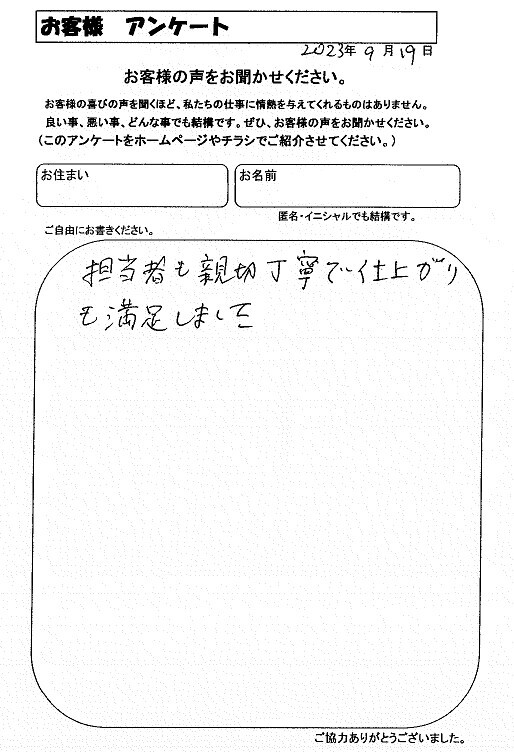 お客様　アンケート
2023年 9月 19日
お客様の声をお聞かせください。
お客様の喜びの声を聞くほど、私たちの仕事に情熱を与えてくれるものはありません。
良い事、悪い事、どんな事でも結構です。ぜひ、お客様の声をお聞かせください。
（このアンケートをホームページやチラシでご紹介させてください。）
お住まい
お名前
匿名・イニシャルでも結構です。
ご自由にお書きください。
担当者も親切丁寧で仕上がり
も満足しました
ご協力ありがとうございました。